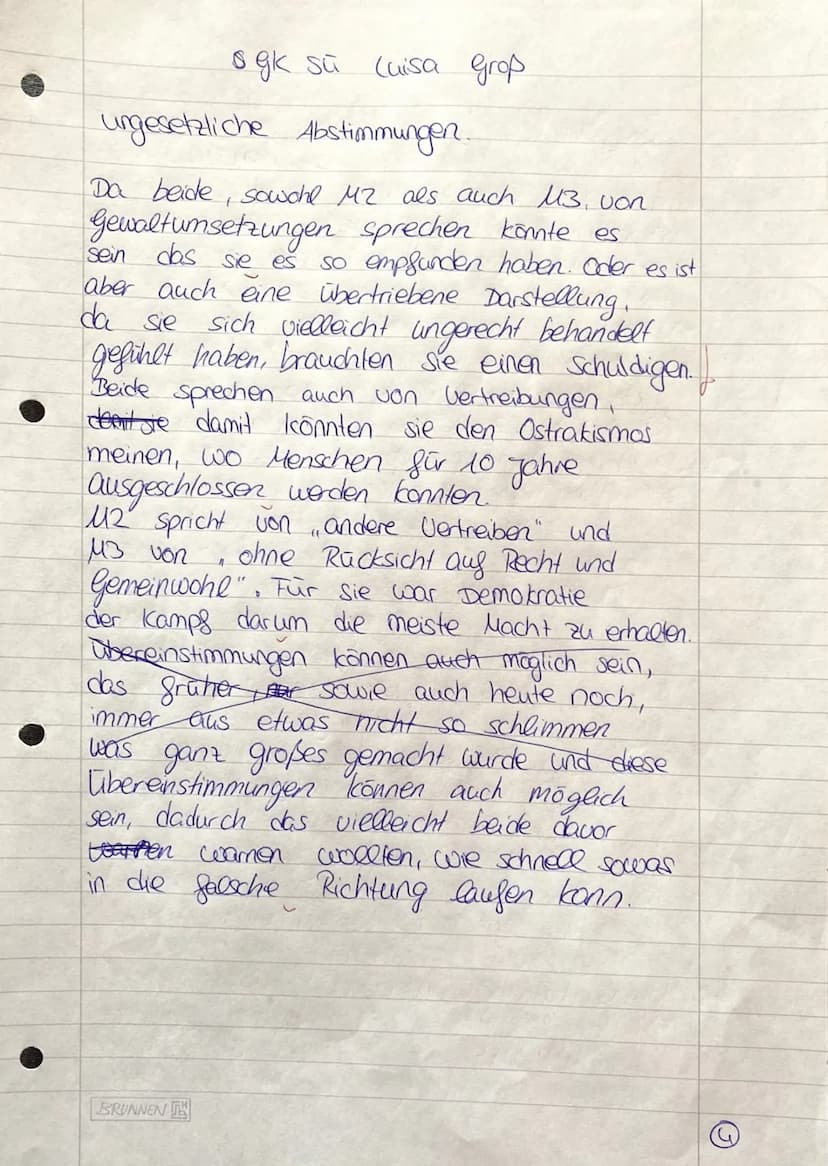 gk sü Luisa Groß
ungesetzliche Abstimmungen.
Da beide, sowohl M2 als auch M3, von
Gewaltumsetzungen sprechen könnte es
sein das sie es so empfunden haben. Oder es ist
aber auch eine übertriebene Darstellung,
da sie sich vielleicht ungerecht behandelt
gefühlt haben, brauchten sie einen Schuldigen.
Beide sprechen auch von Vertreibungen,
damit sie damit könnten sie den Ostrakismos
meinen, wo Menschen für 10 Jahre
ausgeschlossen werden konnten.
M2 spricht von „andere Vertreiben" und
M3 von „ohne Rücksicht auf Recht und
Gemeinwohl". Für sie war Demokratie
der Kampf darum die meiste Macht zu erhalten.
Übereinstimmungen können auch möglich sein,
das früher, sowie auch heute noch,
immer aus etwas nicht so schlimmen
was ganz großes gemacht wurde und diese
Übereinstimmungen können auch möglich
sein, dadurch das vielleicht beide davor
warnen wollten, wie schnell sowas
in die falsche Richtung laufen kann.
BRUNNEN
4